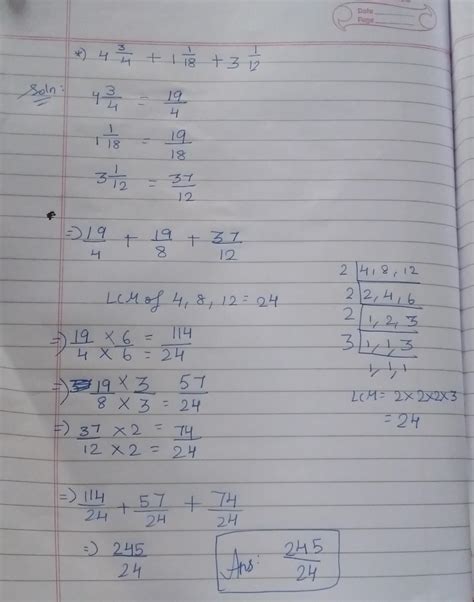 Date
Page
*) 4 3/4 + 1 1/18 + 3 1/12
Soln:
4 3/4 = 19/4
1 1/18 = 19/18
3 1/12 = 37/12
=) 19/4 + 19/8 + 37/12
LCM of 4, 8, 12 = 24
2 | 4, 8, 12
2 | 2, 4, 6
2 | 1, 2, 3
3 | 1, 1, 3
1, 1, 1
LCM = 2×2×2×3
= 24
=) 19/4 × 6/6 = 114/24
=) 19/8 × 3/3 57/24
=) 37/12 × 2/2 = 74/24
=) 114/24 + 57/24 + 74/24
=) 245/24
Ans: 245/24